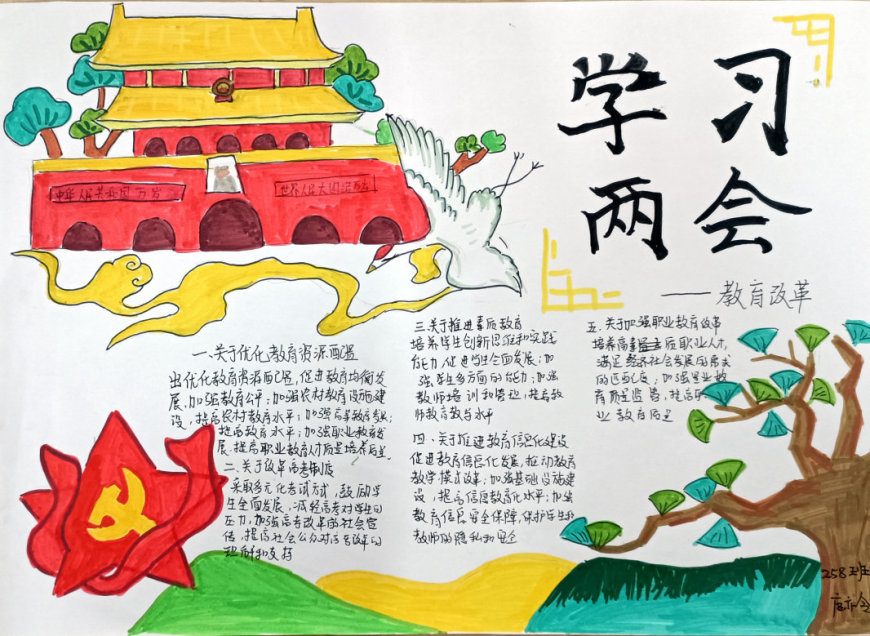 学习
两会
——教育改革
中华人民共和国万岁
世界人民大团结万岁
一、关于优化教育资源配置
出优化教育资源配置,促进教育均衡发
展,加强教育公平;加强农村教育设施建
设,提高农村教育水平;加强高等教育
提高教育水平;加强职业教育发
展.提高职业教育人才质量培养质量.
二、关于改革高考制度
采取多元化考试方式,鼓励学
生全面发展,减轻高考对学生的
压力,加强高考改革的社会宣
传,提高社会公众对高考改革的
理解和支持
三.关于推进素质教育
培养学生创新思维和实践
能力,促进学生全面发展;加
强学生多方面的能力;加强
教师培训和管理,提高教
师教育教学水平
四、关于推进教育信息化建设
促进教育信息化发展,推动教育
教学模式改革;加强基础设施建
设,提高信息教育化水平;加强
教育信息安全保障,保护学生和
教师的隐私和安全
五、关于加强职业教育改革
培养高素质职业人才,
满足经济社会发展的需求
的匹配度,加强职业教
育质量监管,提高职
业教育质量
258班